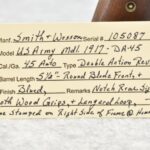 Manf. Smith & Wesson Serial # 105087
Model US Army Mdl. 1917 - DA 45
Ca./Ga. .45 Auto Type Double Action Rev
Barrel Length 5½" - Round Blade Front &
Finish Blued, Remarks Notch Rear
Smooth Wood Grips & Lanyard Loop
Stamped on Right Side of Frame @